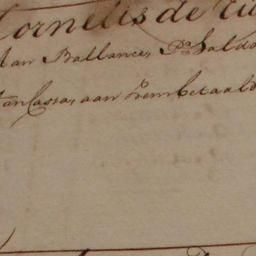 Cornelis de
Aan Ballance, Pr Saldo
Van Cassa, aan hem betaald